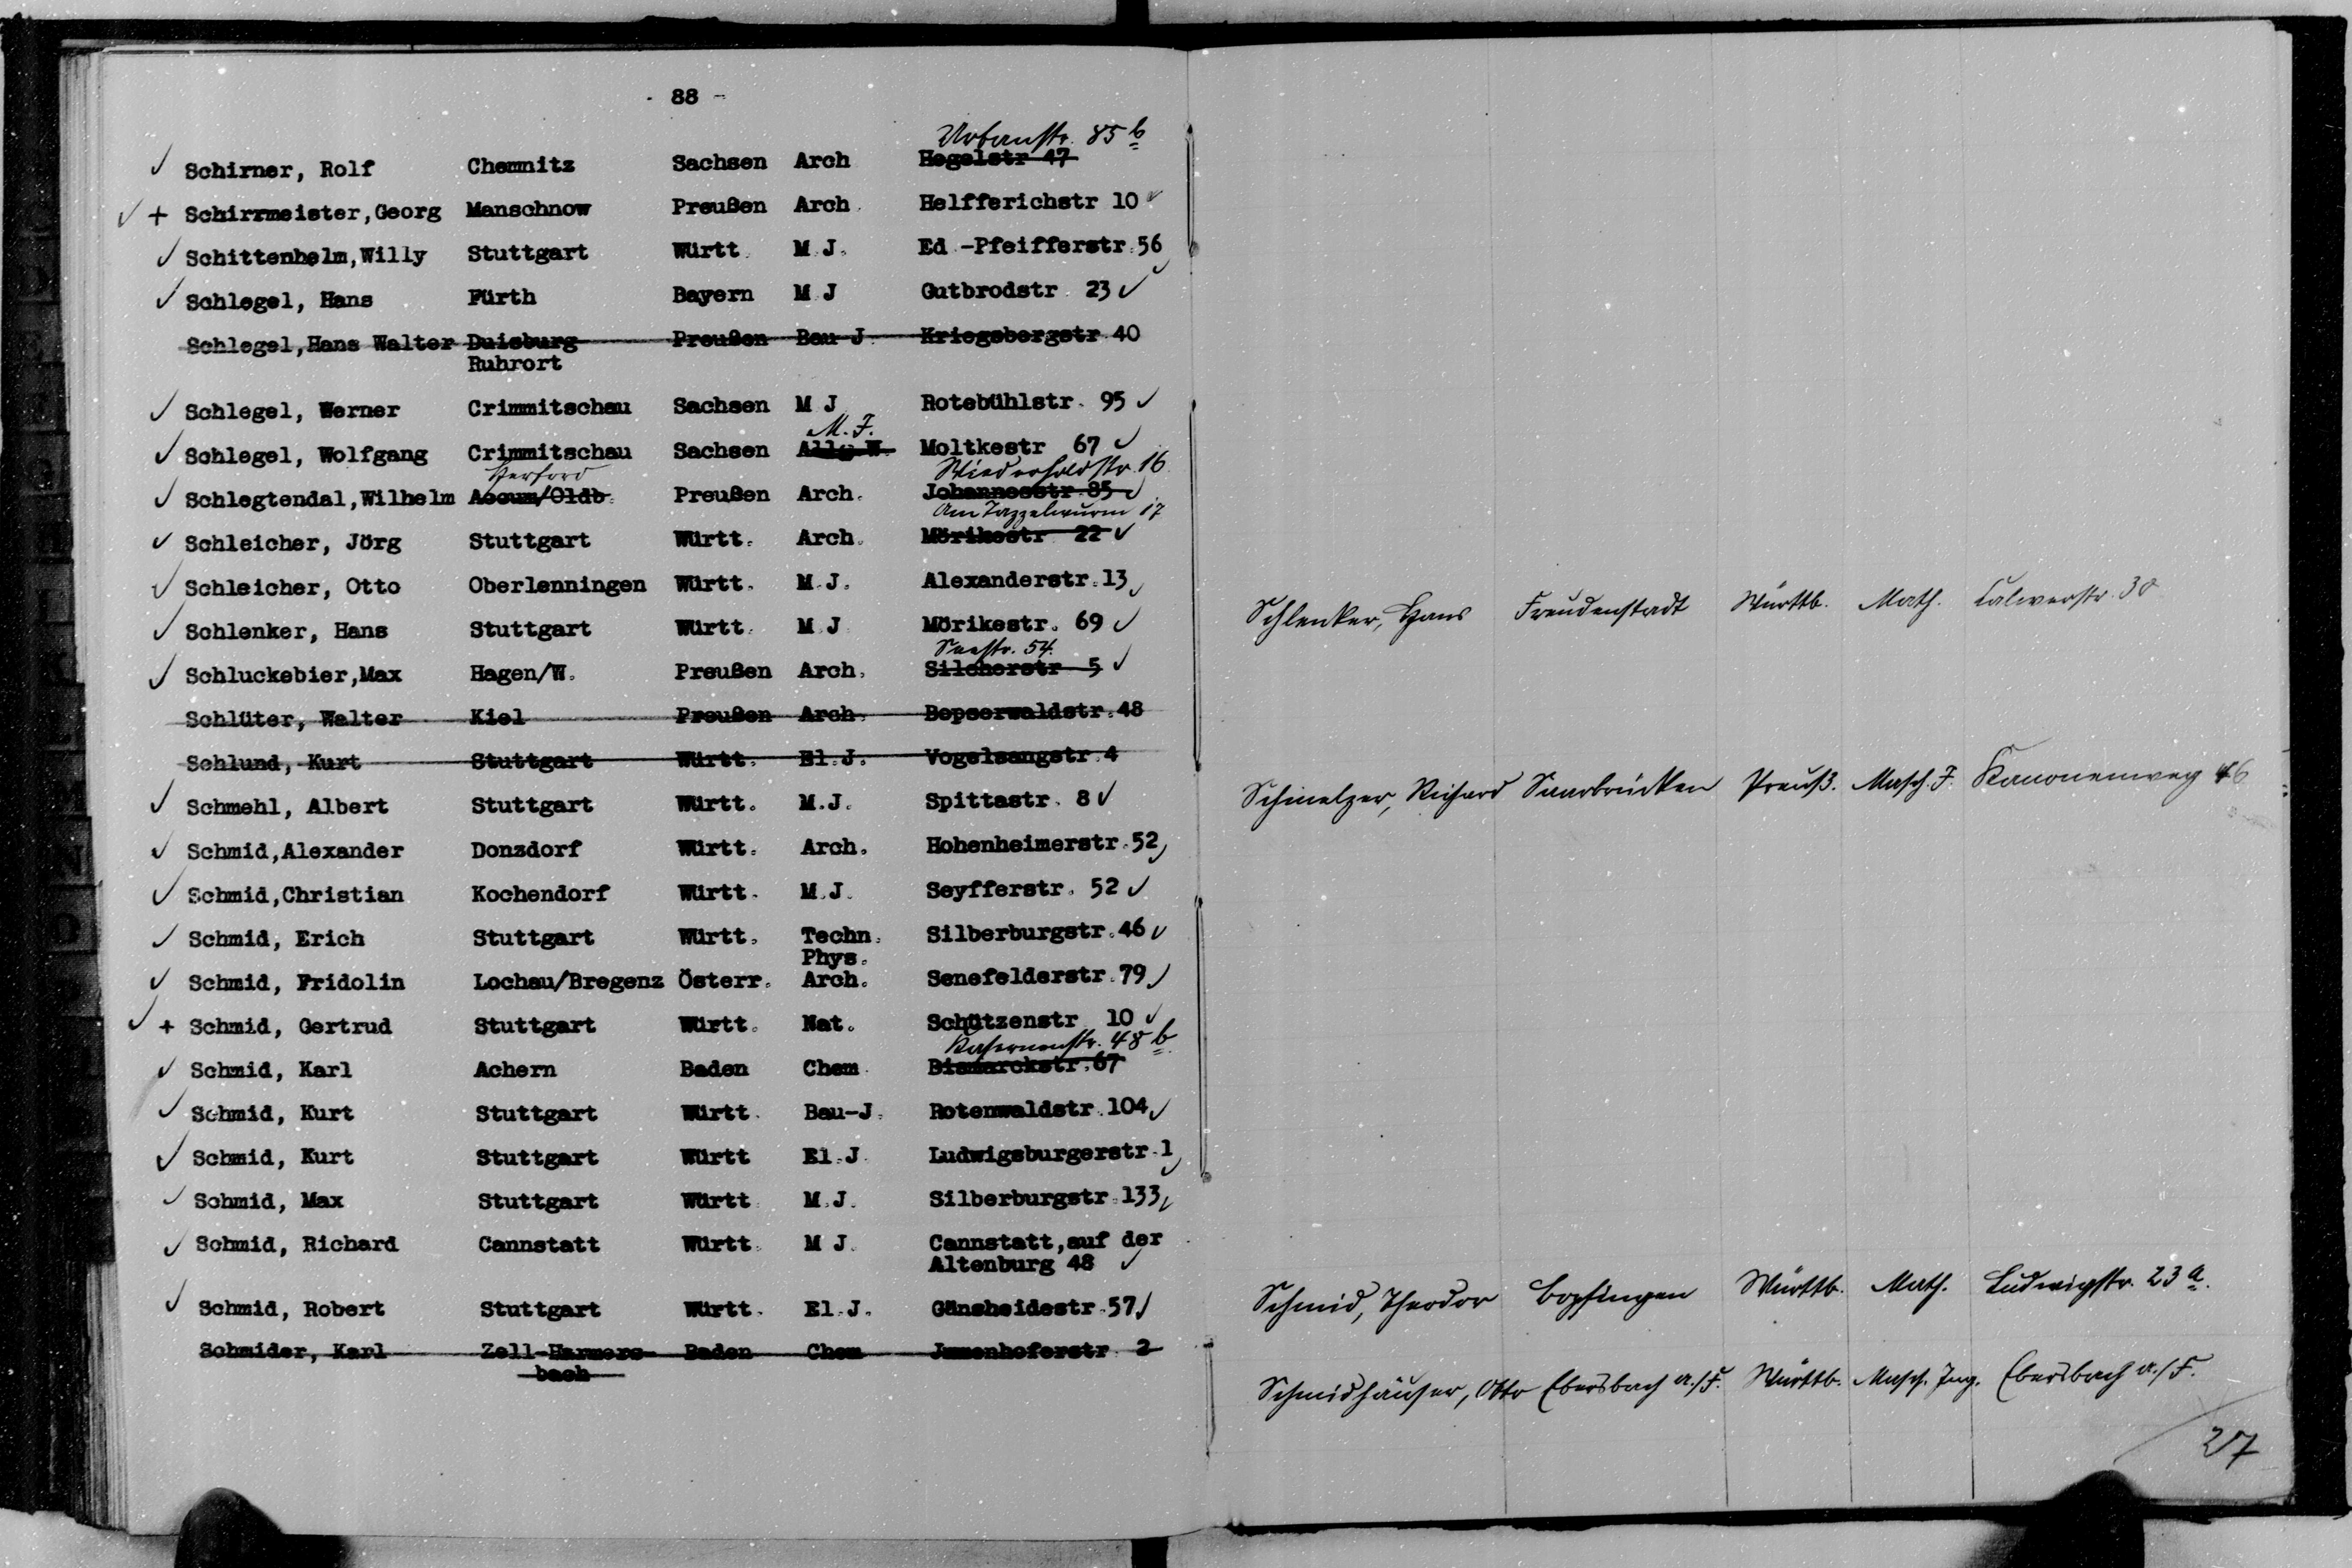 - 88 -
Urbanstr. 85 b
Schirner, Rolf Chemnitz Sachsen Arch Hegelstr 47
+ Schirrmeister,Georg Manschnow Preußen Arch. Helfferichstr 10
Schittenhelm,Willy Stuttgart Württ. M.J. Ed.-Pfeifferstr.56
Schlegel, Hans Fürth Bayern M.J Gutbrodstr. 23
Schlegel,Hans Walter Duisburg Preußen Bau J. Kriegsbergstr.40
Ruhrort
Schlegel, Werner Crimmitschau Sachsen M J Rotebühlstr. 95
M. J.
Schlegel, Wolfgang Crimmitschau Sachsen Allg.W. Moltkestr 67
Herford Wiederholdstr. 16
Schlegtendal,Wilhelm Accum/Oldb. Preußen Arch. Johannesstr.85
Am Tazzelwurm 17
Schleicher, Jörg Stuttgart Württ. Arch. Mörikestr 22
Schleicher, Otto Oberlenningen Württ. M.J. Alexanderstr.13
Schlenker, Hans Stuttgart Württ. M.J Mörikestr. 69
Seestr. 54.
Schluckebier,Max Hagen/W. Preußen Arch. Silcherstr 5
Schlüter, Walter Kiel Preußen Arch. Bopserwaldstr.48
Schlund, Kurt Stuttgart Württ. El.J. Vogelsangstr.4
Schmehl, Albert Stuttgart Württ. M.J. Spittastr. 8
Schmid,Alexander Donzdorf Württ. Arch. Hohenheimerstr.52
Schmid,Christian Kochendorf Württ. M.J. Seyfferstr. 52
Schmid, Erich Stuttgart Württ. Techn. Silberburgstr.46
Phys.
Schmid, Fridolin Lochau/Bregenz Österr. Arch. Senefelderstr.79
+ Schmid, Gertrud Stuttgart Württ. Nat. Schützenstr 10
Kasernenstr. 48 b
Schmid, Karl Achern Baden Chem. Bismarckstr.67
Schmid, Kurt Stuttgart Württ. Bau-J. Rotenwaldstr.104
Schmid, Kurt Stuttgart Württ El.J. Ludwigsburgerstr.1
Schmid, Max Stuttgart Württ M.J. Silberburgstr.133
Schmid, Richard Cannstatt Württ. M J. Cannstatt,auf der
Altenburg 48
Schmid, Robert Stuttgart Württ. El.J. Gänsheidestr.57
Schmider, Karl Zell-Harmers- Baden Chem Immenhoferstr. 2
bach
Schlenker, Hans Freudenstadt Württb. Math. Calwerstr. 30
Schmelzer, Richard Saarbrücken Preuß. Masch. J. Kanonenweg 46
Schmid, Theodor Bopfingen Württb. Math. Ludwigstr. 23 a.
Schmidhäuser, Otto Ebersbach a./F. Württb. Masch. Ing. Ebersbach a./F.
27